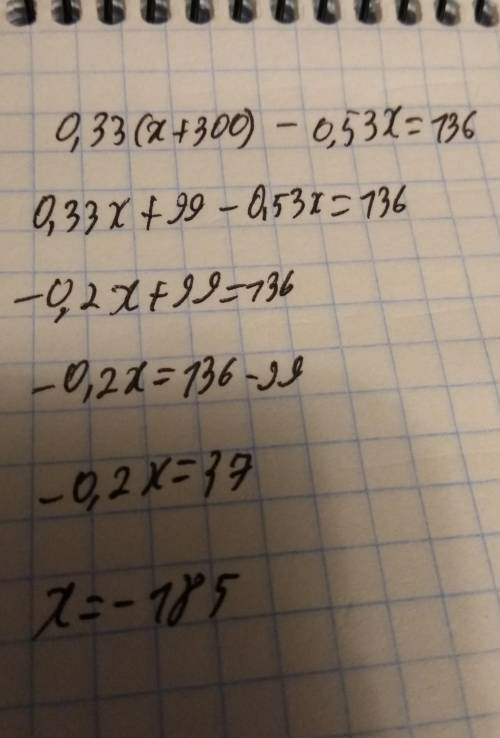 0,33(x+300) - 0,53x=136
0,33x+99-0,53x=136
-0,2x+99=136
-0,2x=136-99
-0,2x=37
x=-185